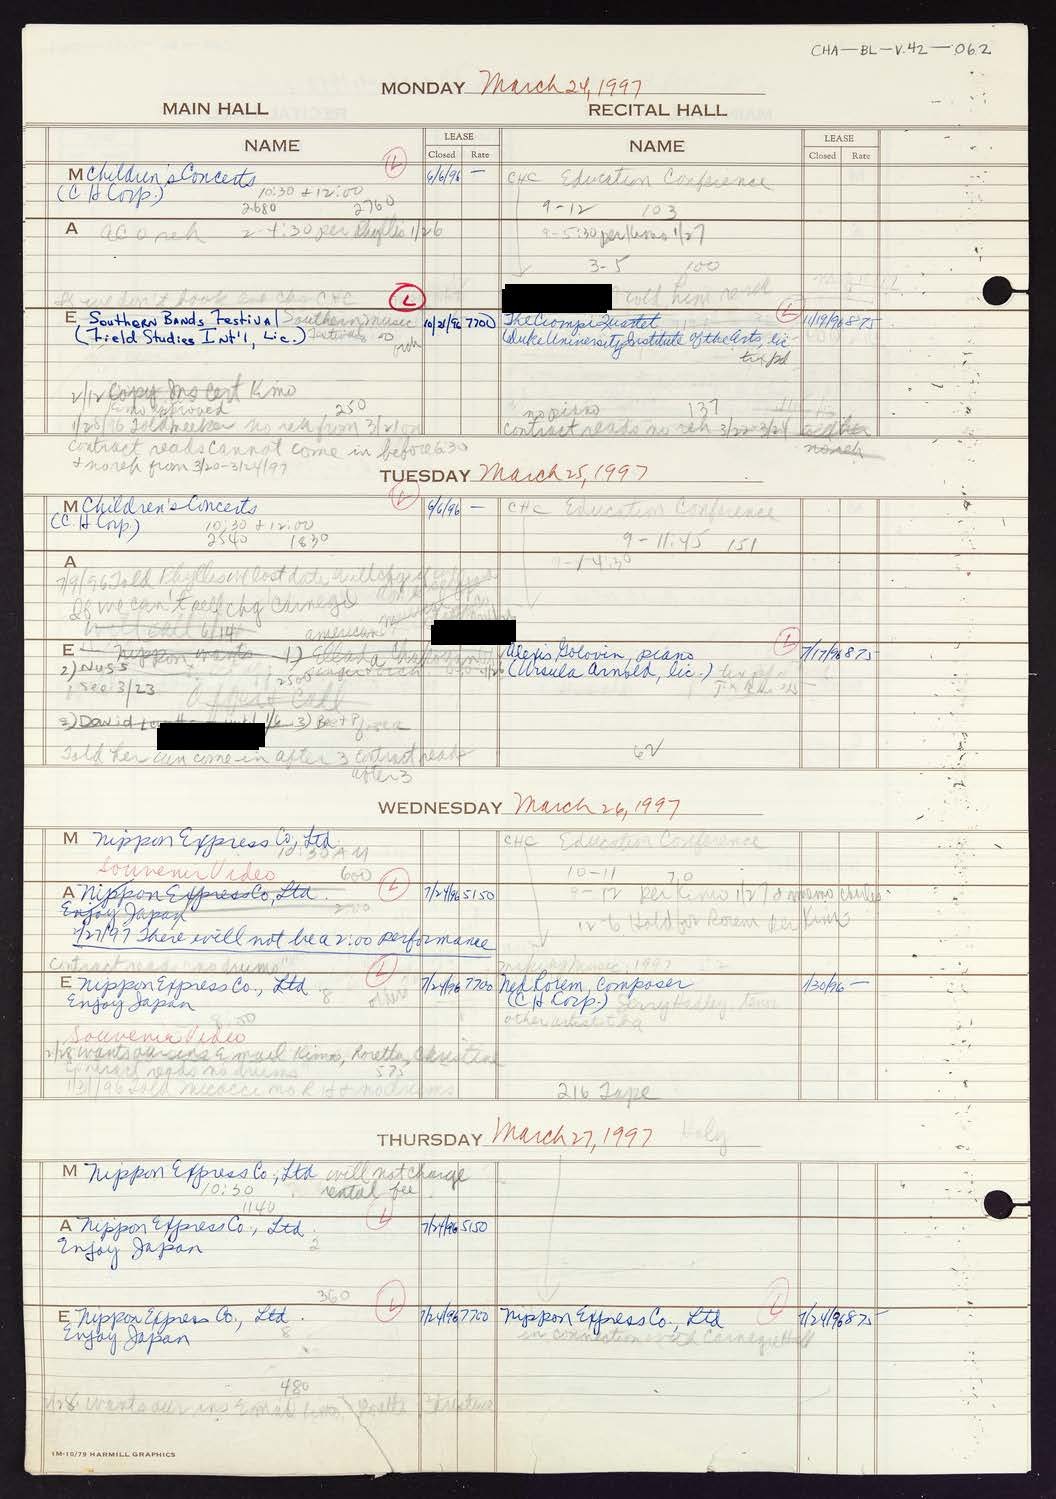 CHA-BL-V.42-062
MONDAY March 24, 1997
MAIN HALL
RECITAL HALL
NAME
LEASE
Closed
Rate
NAME
LEASE
Closed
Rate
M Children's Concerts
(C H Corp.)
10:30 + 12:00
2680 2760
L
6/6/96 —
CHC Education Conference
9-12 103
A
2-4:30 per Phyllis 1/26
9-5:30 per Kimo 1/27
3-5 100
If we don't book
CHC
told him no reh
E Southern Bands Festival Southern Music
(Field Studies Int'l, Lic.) Festival no
L
10/21/96 7700
The Ciompi Quartet
(Duke University Institute of the Arts, lic.
tix pd
L
11/19/96 875
2/12 Copy Ins Cert Kimo
Kimo approved 250
no reh from 3/21 on
contract reads cannot come in before 6:30
+ no reh from 3/20-3/24/97
no piano 137
contract reads no reh 3/22-3/24 told her
no reh
TUESDAY March 25, 1997
M Children's Concerts
(C. H Corp)
10:30 + 12:00
2540 1830
L
6/6/96 —
CHC Education Conference
9-11:45 151
A
1-4:30
7/9/96 Told Phyllis
If we can't sell chg Carnegie
will call 6/14
american
E Nippon wants 1)
2) Nuss
see 3/23
2500
2) David
3)
Told her can come in after 3 contract reads
after 3
Alexis Golovin, piano
(Ursula Arnold, lic.)
L
7/17/96 875
62
WEDNESDAY March 26, 1997
M Nippon Express Co, Ltd.
10:30 AM
Souvenir Video 600
CHC Education Conference
10-11 70
A Nippon Express Co, Ltd.
Enjoy Japan
L
7/24/96 5150
9-12 per Kimo 1/27 & memo
12-6 Hold for Rorem per Kimo
1/27/97 There will not be a 2:00 performance
contract reads "no drums"
Making Music, 1997
E Nippon Express Co., Ltd.
Enjoy Japan
8
L
7/24/96 7700
Ned Rorem, Composer
(C H Corp.) Jerry Hadley, tenor
other artist tba
1/30/96 —
8:00
Souvenir Video
2/28 wants our ins E mail Kimo, Loretta, Christine
Contract reads no drums 575
1/31/96 Told no R H + no drums
216 Tape
THURSDAY March 27, 1997 Holy
M Nippon Express Co., Ltd will not charge
rental fee
10:30
1140
A Nippon Express Co., Ltd.
Enjoy Japan
2
L
7/24/96 5150
360
E Nippon Express Co., Ltd.
Enjoy Japan
8
L
7/24/96 7700
Nippon Express Co., Ltd
in connection with Carnegie Hall
L
7/24/96 875
480
2/28 wants our ins E mail Kimo
1M-10/79 HARMILL GRAPHICS